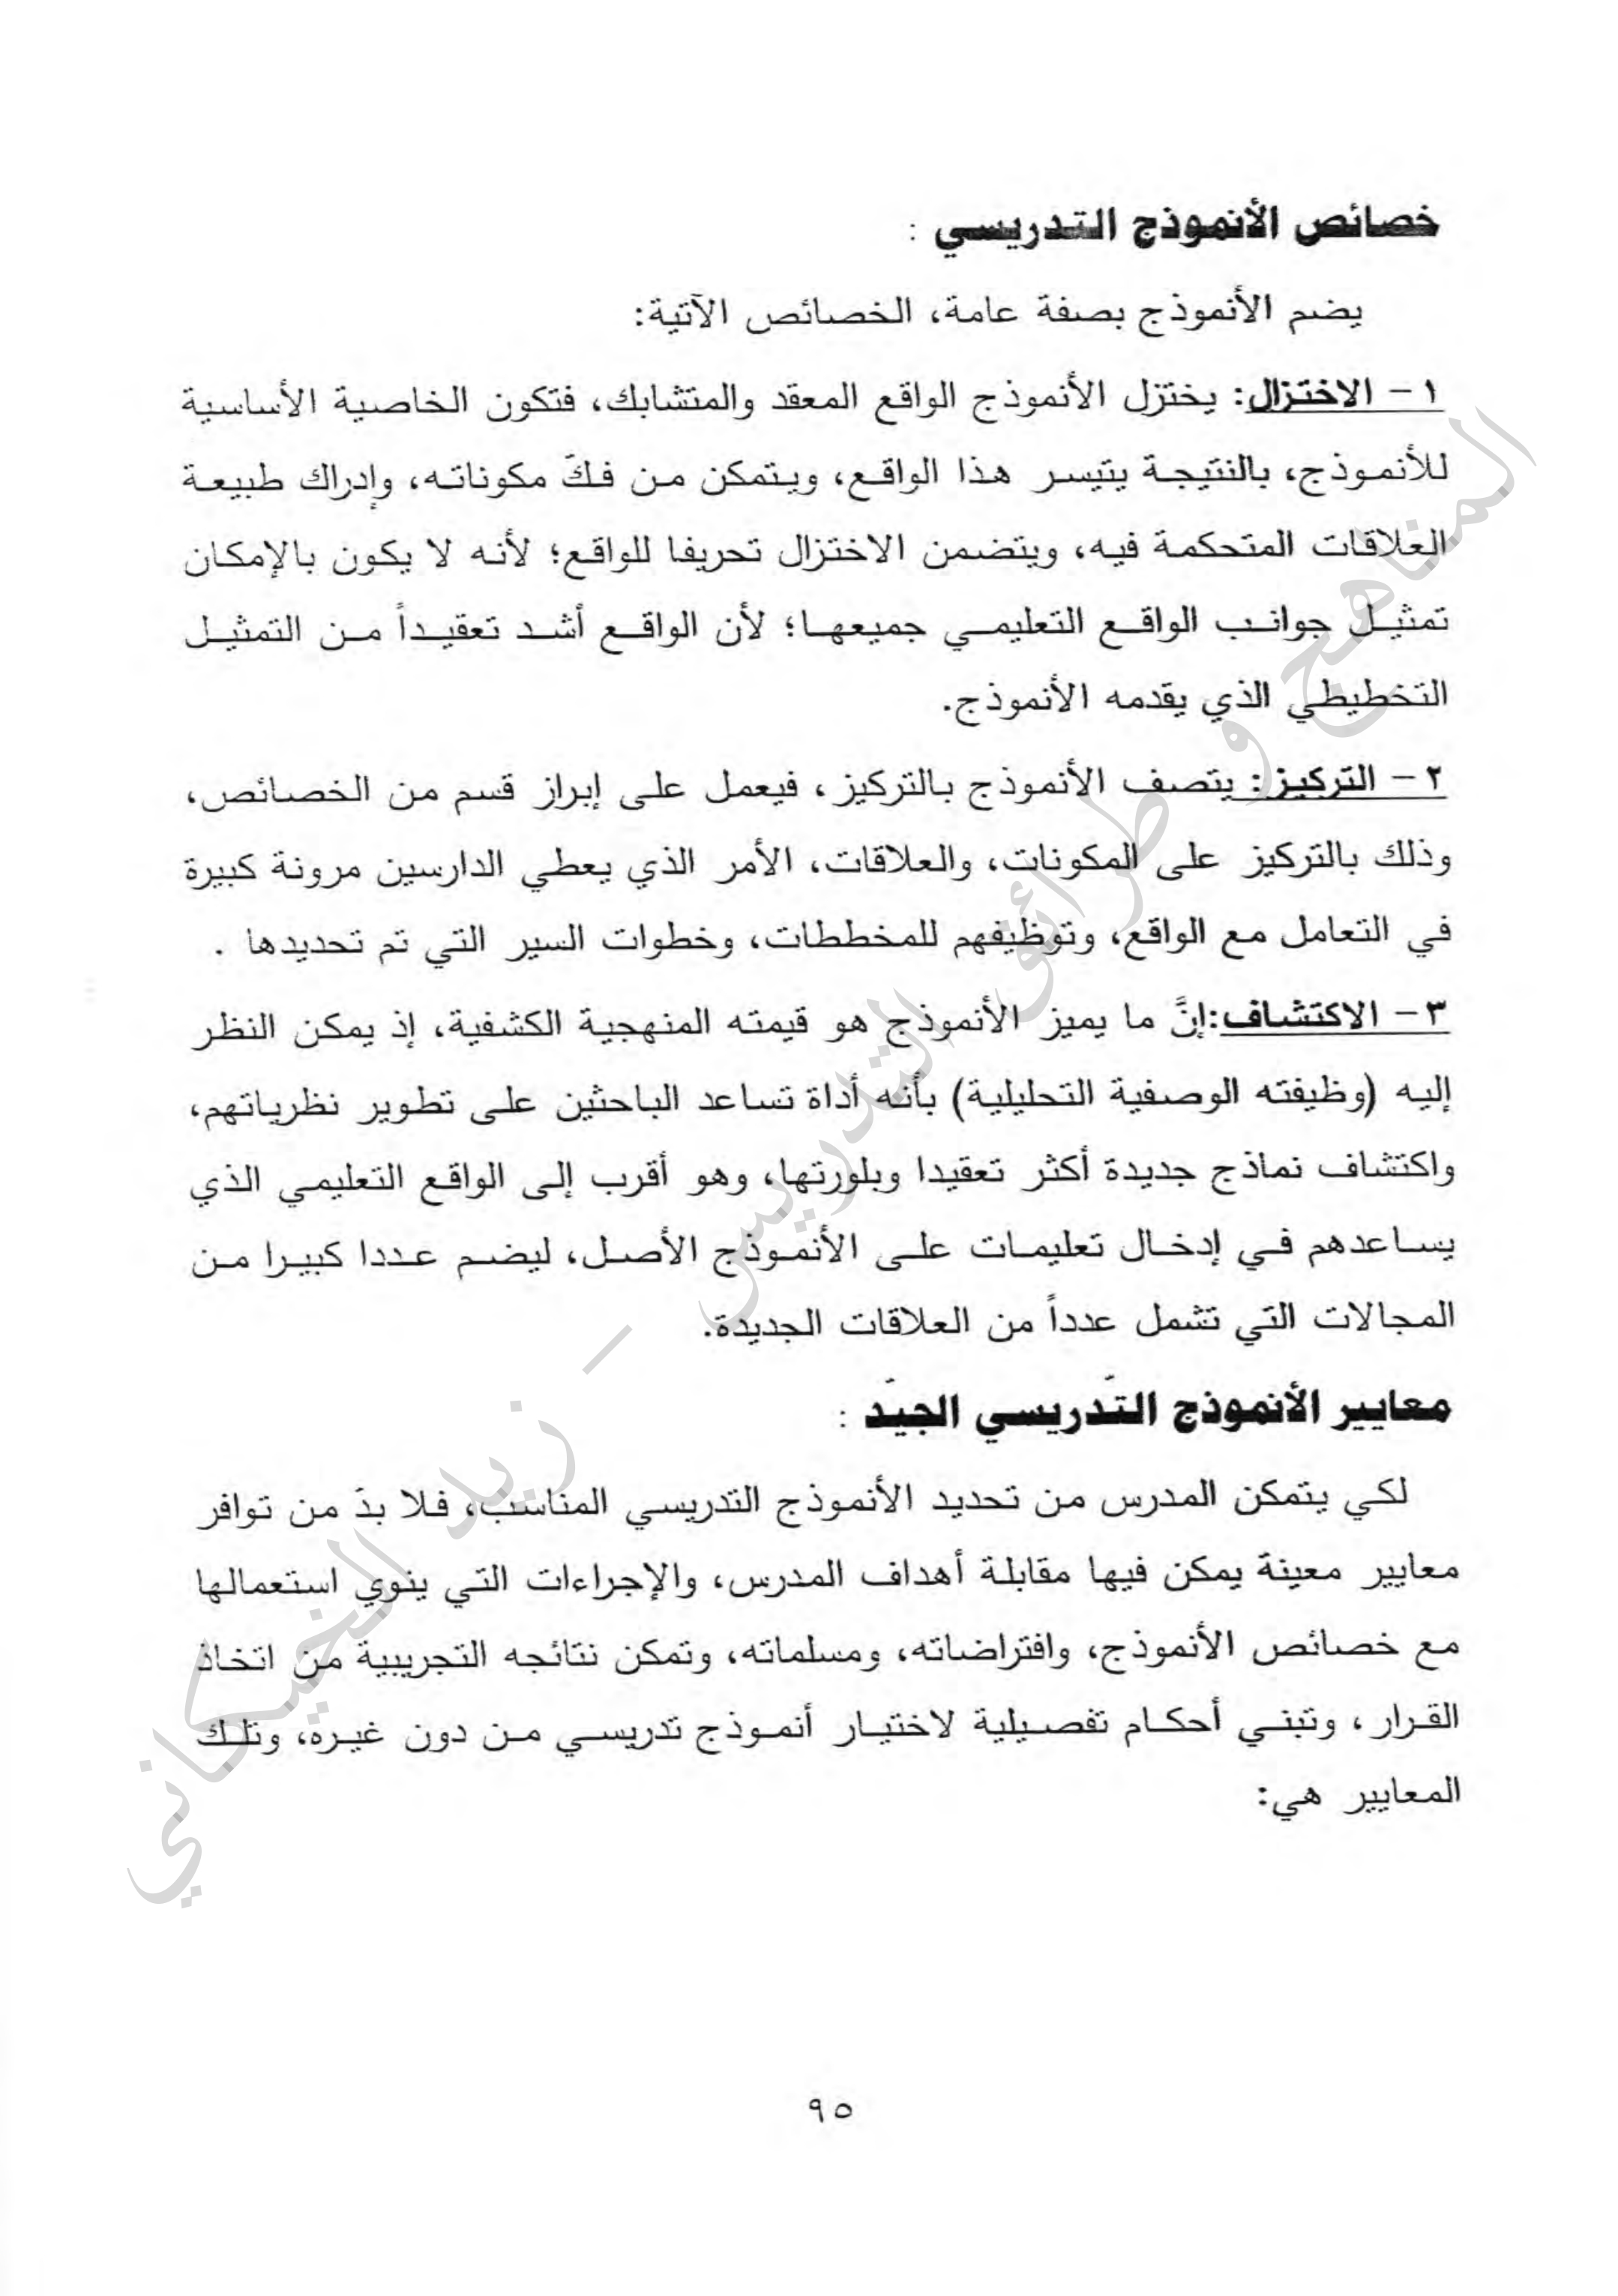 خصائص الأنموذج التدريسي :
يضم الأنموذج بصفة عامة، الخصائص الآتية:
١ - الاختزال: يختزل الأنموذج الواقع المعقد والمتشابك، فتكون الخاصية الأساسية
للأنموذج، بالنتيجة يتيسر هذا الواقع، ويتمكن من فكّ مكوناته، وإدراك طبيعة
العلاقات المتحكمة فيه، ويتضمن الاختزال تحريفا للواقع؛ لأنه لا يكون بالإمكان
تمثيل جوانب الواقع التعليمي جميعها؛ لأن الواقع أشد تعقيداً من التمثيل
التخطيطي الذي يقدمه الأنموذج.
٢ - التركيز: يتصف الأنموذج بالتركيز، فيعمل على إبراز قسم من الخصائص،
وذلك بالتركيز على المكونات، والعلاقات، الأمر الذي يعطي الدارسين مرونة كبيرة
في التعامل مع الواقع، وتوظيفهم للمخططات، وخطوات السير التي تم تحديدها .
٣ - الاكتشاف:إنَّ ما يميز الأنموذج هو قيمته المنهجية الكشفية، إذ يمكن النظر
إليه (وظيفته الوصفية التحليلية) بأنه أداة تساعد الباحثين على تطوير نظرياتهم،
واكتشاف نماذج جديدة أكثر تعقيدا وبلورتها، وهو أقرب إلى الواقع التعليمي الذي
يساعدهم في إدخال تعليمات على الأنموذج الأصل، ليضم عددا كبيرا من
المجالات التي تشمل عدداً من العلاقات الجديدة.
معايير الأنموذج التّدريسي الجيّد :
لكي يتمكن المدرس من تحديد الأنموذج التدريسي المناسب، فلا بدّ من توافر
معايير معينة يمكن فيها مقابلة أهداف المدرس، والإجراءات التي ينوي استعمالها
مع خصائص الأنموذج، وافتراضاته، ومسلماته، وتمكن نتائجه التجريبية من اتخاذ
القرار، وتبني أحكام تفصيلية لاختيار أنموذج تدريسي من دون غيره، وتلك
المعايير هي:
٩٥
المناهج و طرائق التدريس - زيد الخيكاني